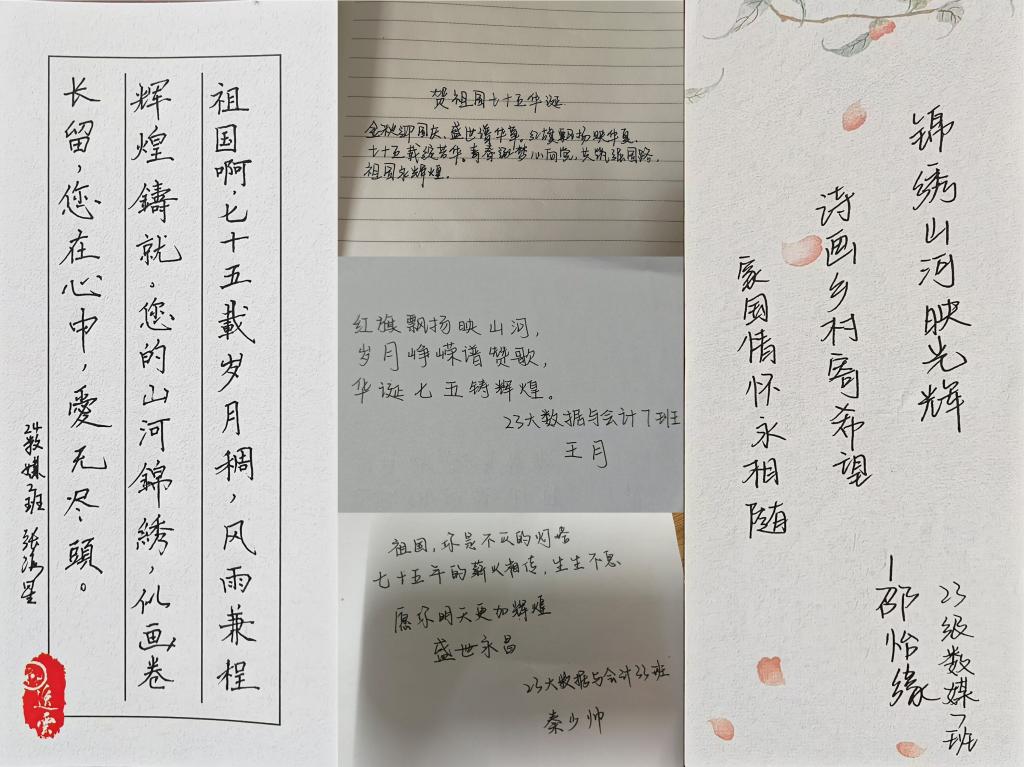 祖国啊，七十五載岁月稠，风雨兼程
辉煌鑄就。您的山河錦綉，似画卷
长留，您在心中，愛无尽頭。
24数媒1班 张海星
贺祖国七十五华诞
金秋迎国庆，盛世谱华章。红旗飘扬映华夏，
七十五载绽芳华。青春逐梦心向党，共筑强国路，
祖国永辉煌。
红旗飘扬映山河，
岁月峥嵘谱赞歌，
华诞七五铸辉煌。
23大数据与会计7班
王月
祖国，你是不灭的灯塔
七十五年的薪火相传，生生不息
愿你明天更加辉煌
盛世永昌
23大数据与会计33班
秦少帅
锦绣山河映光辉
诗画乡村寄希望
家国情怀永相随
23级数媒1班
—邵怡缘